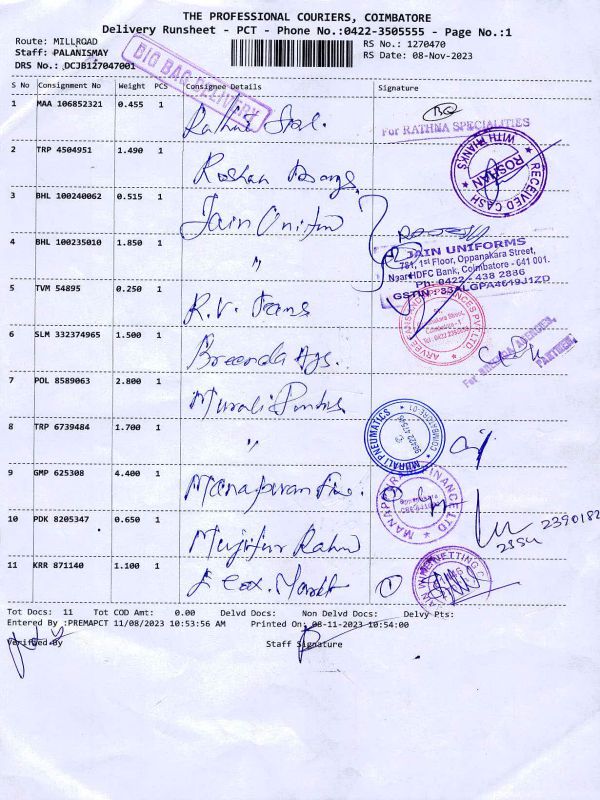 THE PROFESSIONAL COURIERS, COIMBATORE
Delivery Runsheet - PCT - Phone No.:0422-3505555 - Page No.:1
Route: MILLROAD
Staff: PALANISMAY
DRS No.: DCJB127047001
RS No.: 1270470
RS Date: 08-Nov-2023
BIG BAG DELIVERY
S No Consignment No Weight PCS Consignee Details Signature
1 MAA 106852321 0.455 1 Rathna
For RATHNA SPECIALITIES
2 TRP 4504951 1.490 1 Roshan Bags
RECEIVED CASH WITH THANKS ROSHAN
3 BHL 100240062 0.515 1 Jain Uniform
4 BHL 100235010 1.850 1 "
JAIN UNIFORMS
781, 1st Floor, Oppanakara Street,
Near HDFC Bank, Coimbatore - 641 001.
Ph: 0422 - 438 2886
GSTIN : 33ALGPA4619J1ZD
5 TVM 54895 0.250 1 R.V.
6 SLM 332374965 1.500 1 Ags.
PARTNER.
7 POL 8589063 2.800 1 Murali
8 TRP 6739484 1.700 1 "
MURALI PNEUMATICS
COIMBATORE-01
9 GMP 625308 4.400 1 Manapuram Fin.
MANAPPURAM FINANCE LTD
10 PDK 8205347 0.650 1 Mujibur Rahm
2390182
11 KRR 871140 1.100 1
Tot Docs: 11 Tot COD Amt: 0.00 Delvd Docs: Non Delvd Docs: Delvy Pts:
Entered By :PREMAPCT 11/08/2023 10:53:56 AM Printed On: 08-11-2023 10:54:00
Verified By Staff Signature